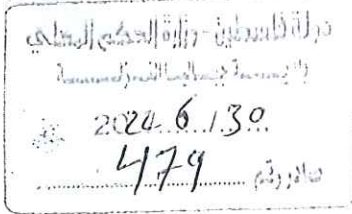 دولة فلسطين - وزارة الحكم المحلي
2024 6 / 30
صادر رقم 479